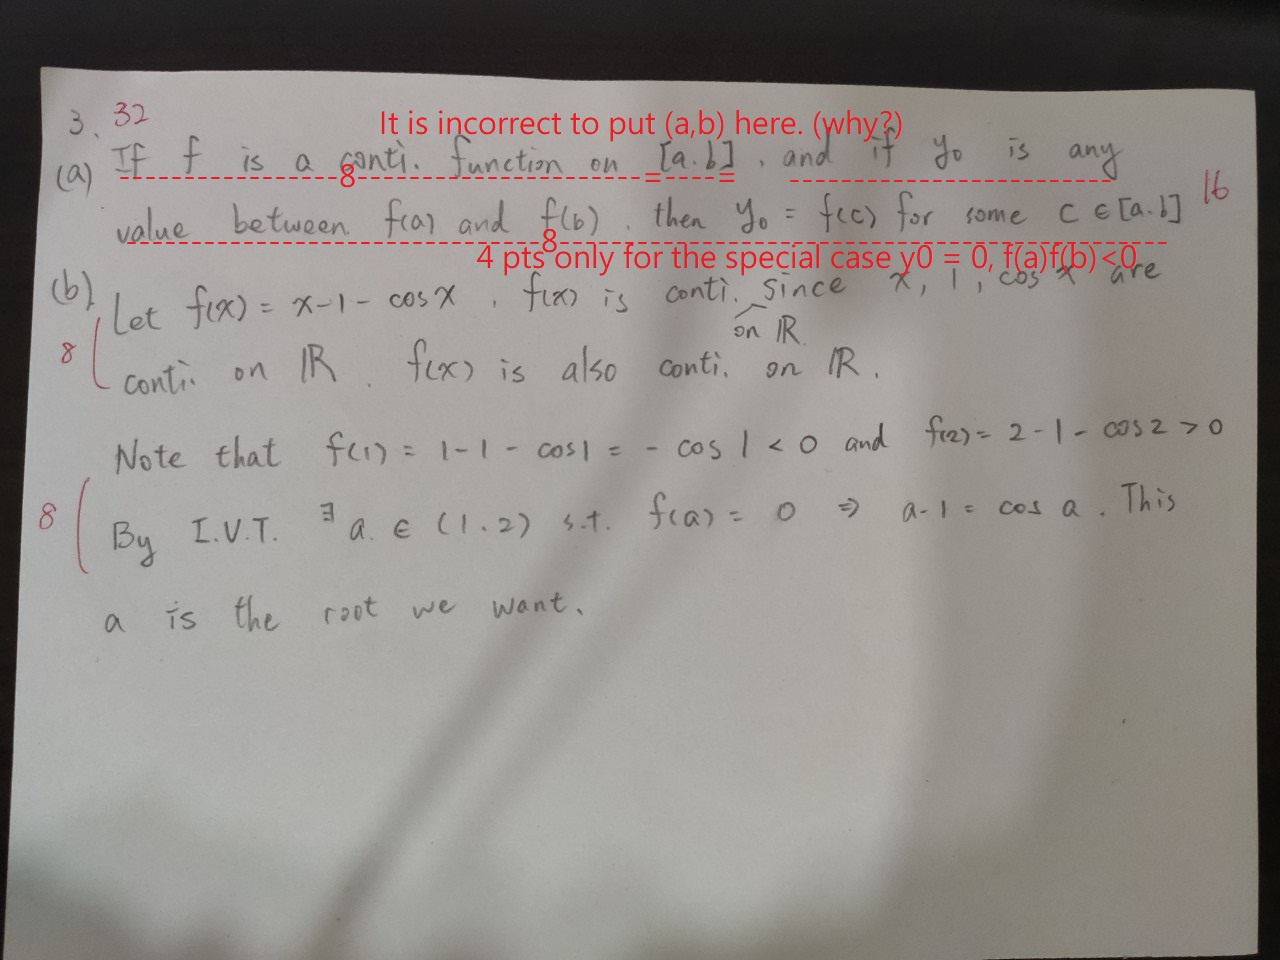 3. 32
It is incorrect to put (a,b) here. (why?)
(a) If f is a conti. function on [a.b], and if y₀ is any
8
16
value between f(a) and f(b), then y₀ = f(c) for some c ∈ [a.b]
8
4 pts only for the special case y0 = 0, f(a)f(b)<0
(b) Let f(x) = x-1-cosx, f(x) is conti. since x, 1, cosx are
on ℝ
8
conti. on ℝ. f(x) is also conti. on ℝ.
Note that f(1) = 1-1-cos1 = -cos1 < 0 and f(2) = 2-1-cos2 > 0
8
By I.V.T. ∃ a ∈ (1.2) s.t. f(a) = 0 ⇒ a-1 = cos a. This
a is the root we want.